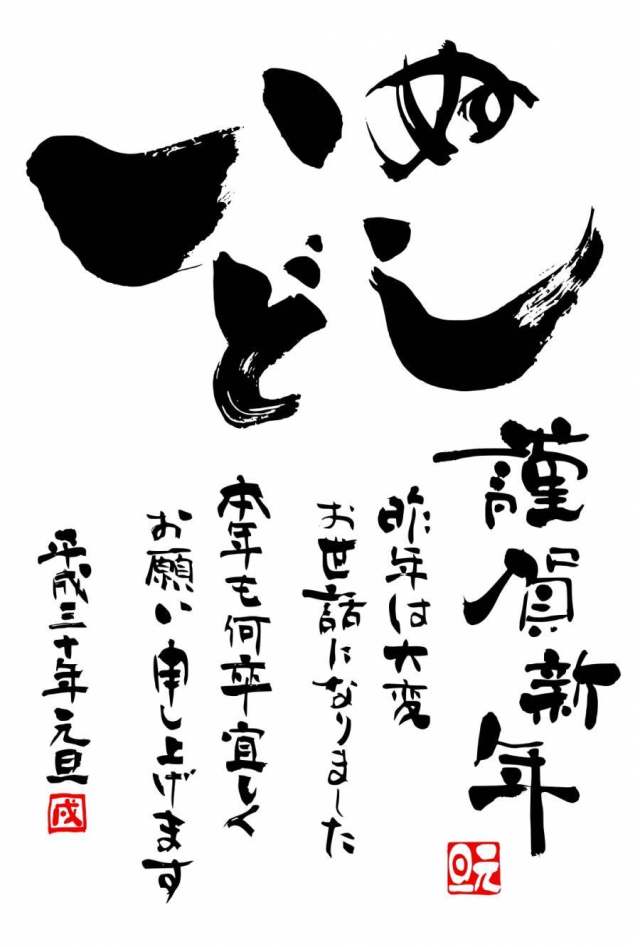 いぬ
どし
謹賀新年
元旦
昨年は大変
お世話になりました
本年も何卒宜しく
お願い申し上げます
平成三十年元旦
戌